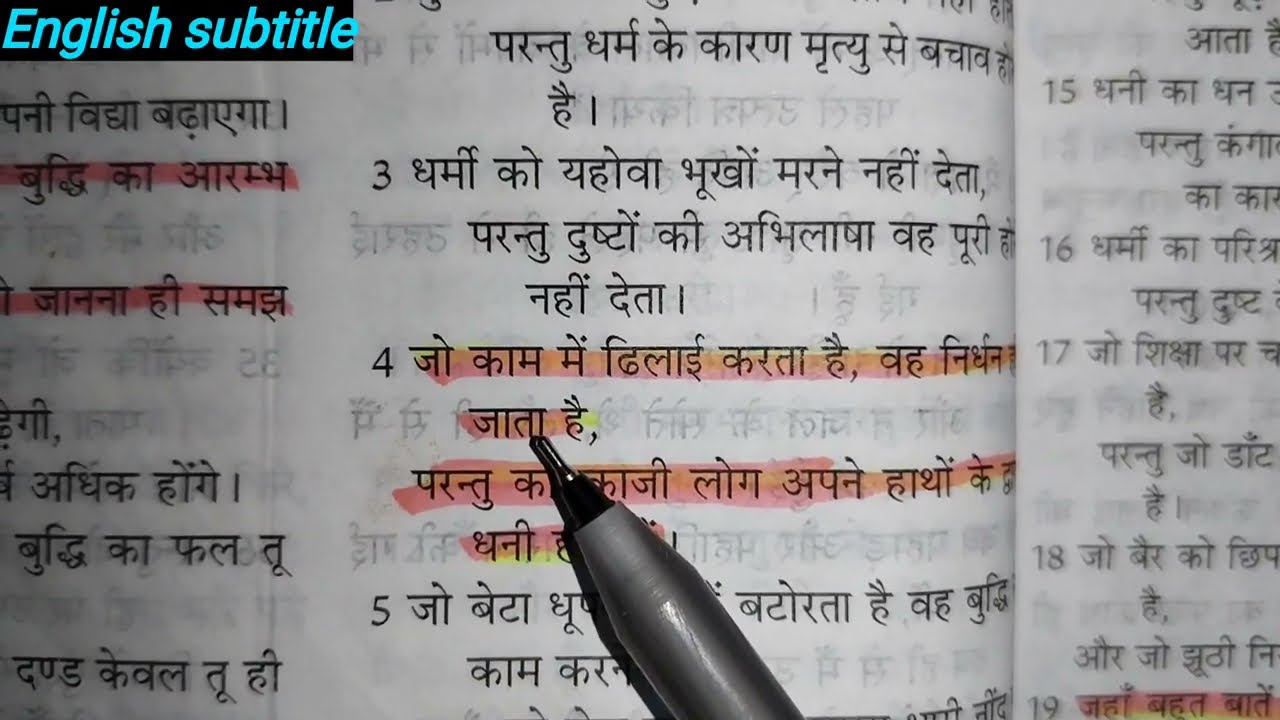 English subtitle
पनी विद्या बढ़ाएगा।
बुद्धि का आरम्भ
जानना ही समझ
अधिक होंगे।
बुद्धि का फल तू
दण्ड केवल तू ही
परन्तु धर्म के कारण मृत्यु से बचाव
है।
3 धर्मी को यहोवा भूखों मरने नहीं देता,
परन्तु दुष्टों की अभिलाषा वह पूरी
नहीं देता।
4 जो काम में ढिलाई करता है, वह निर्धन
जाता है,
परन्तु काजी लोग अपने हाथों के
धनी
5 जो बेटा बटोरता है वह बुद्धि
काम
नींद
आता है
15 धनी का धन
परन्तु
का
16 धर्मी का
परन्तु दुष्ट
17 जो शिक्षा पर
है,
परन्तु जो डाँट
है।
18 जो बैर को
है,
और जो झूठी
19 जहाँ बहुत बातें